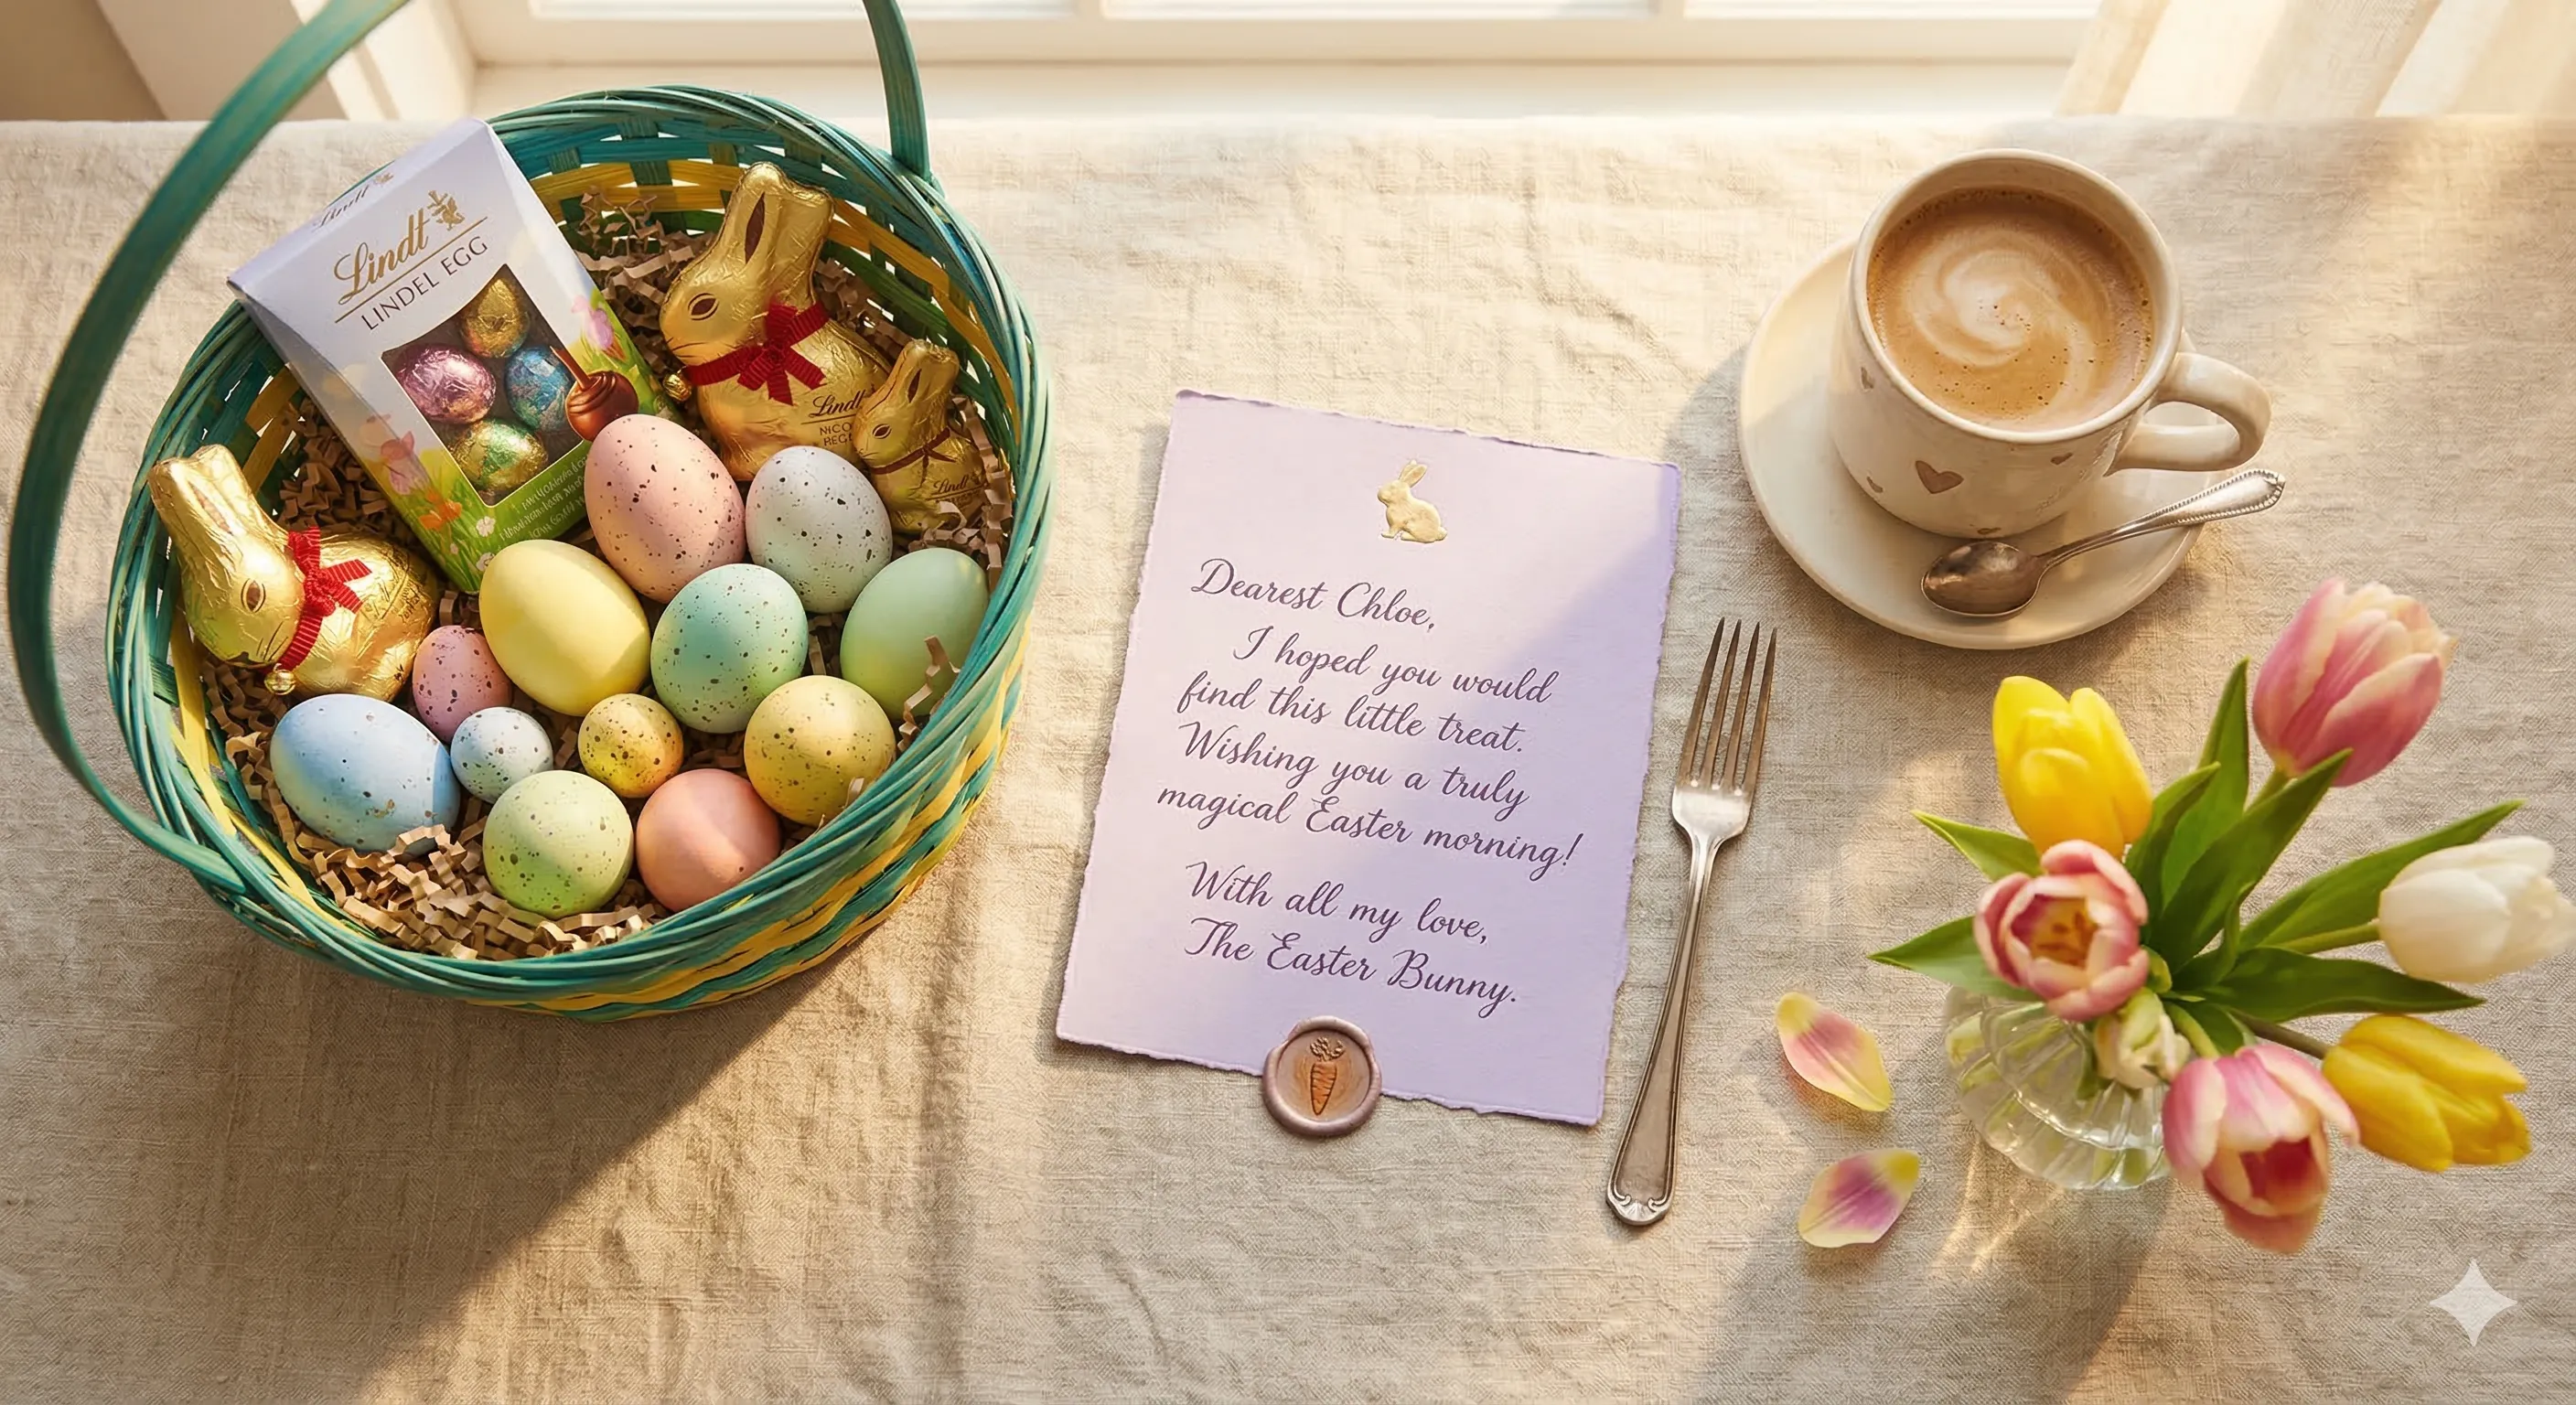 Lindt
Lindt
LINDEL EGG
Lindt
Lindt
Dearest Chloe,
I hoped you would
find this little treat.
Wishing you a truly
magical Easter morning!
With all my love,
The Easter Bunny.